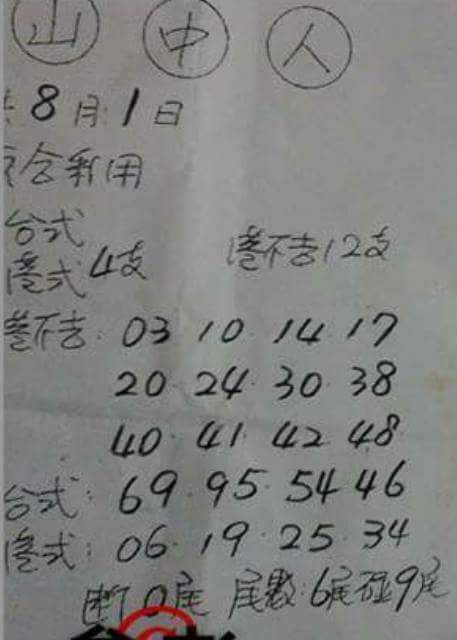 山 中 人
8月1日
合利用
台式
港式 4支 港不吉12支
港不吉: 03 10 14 17
20 24 30 38
40 41 42 48
台式: 69 95 54 46
港式: 06 19 25 34
断0尾 尾數:6尾碰9尾